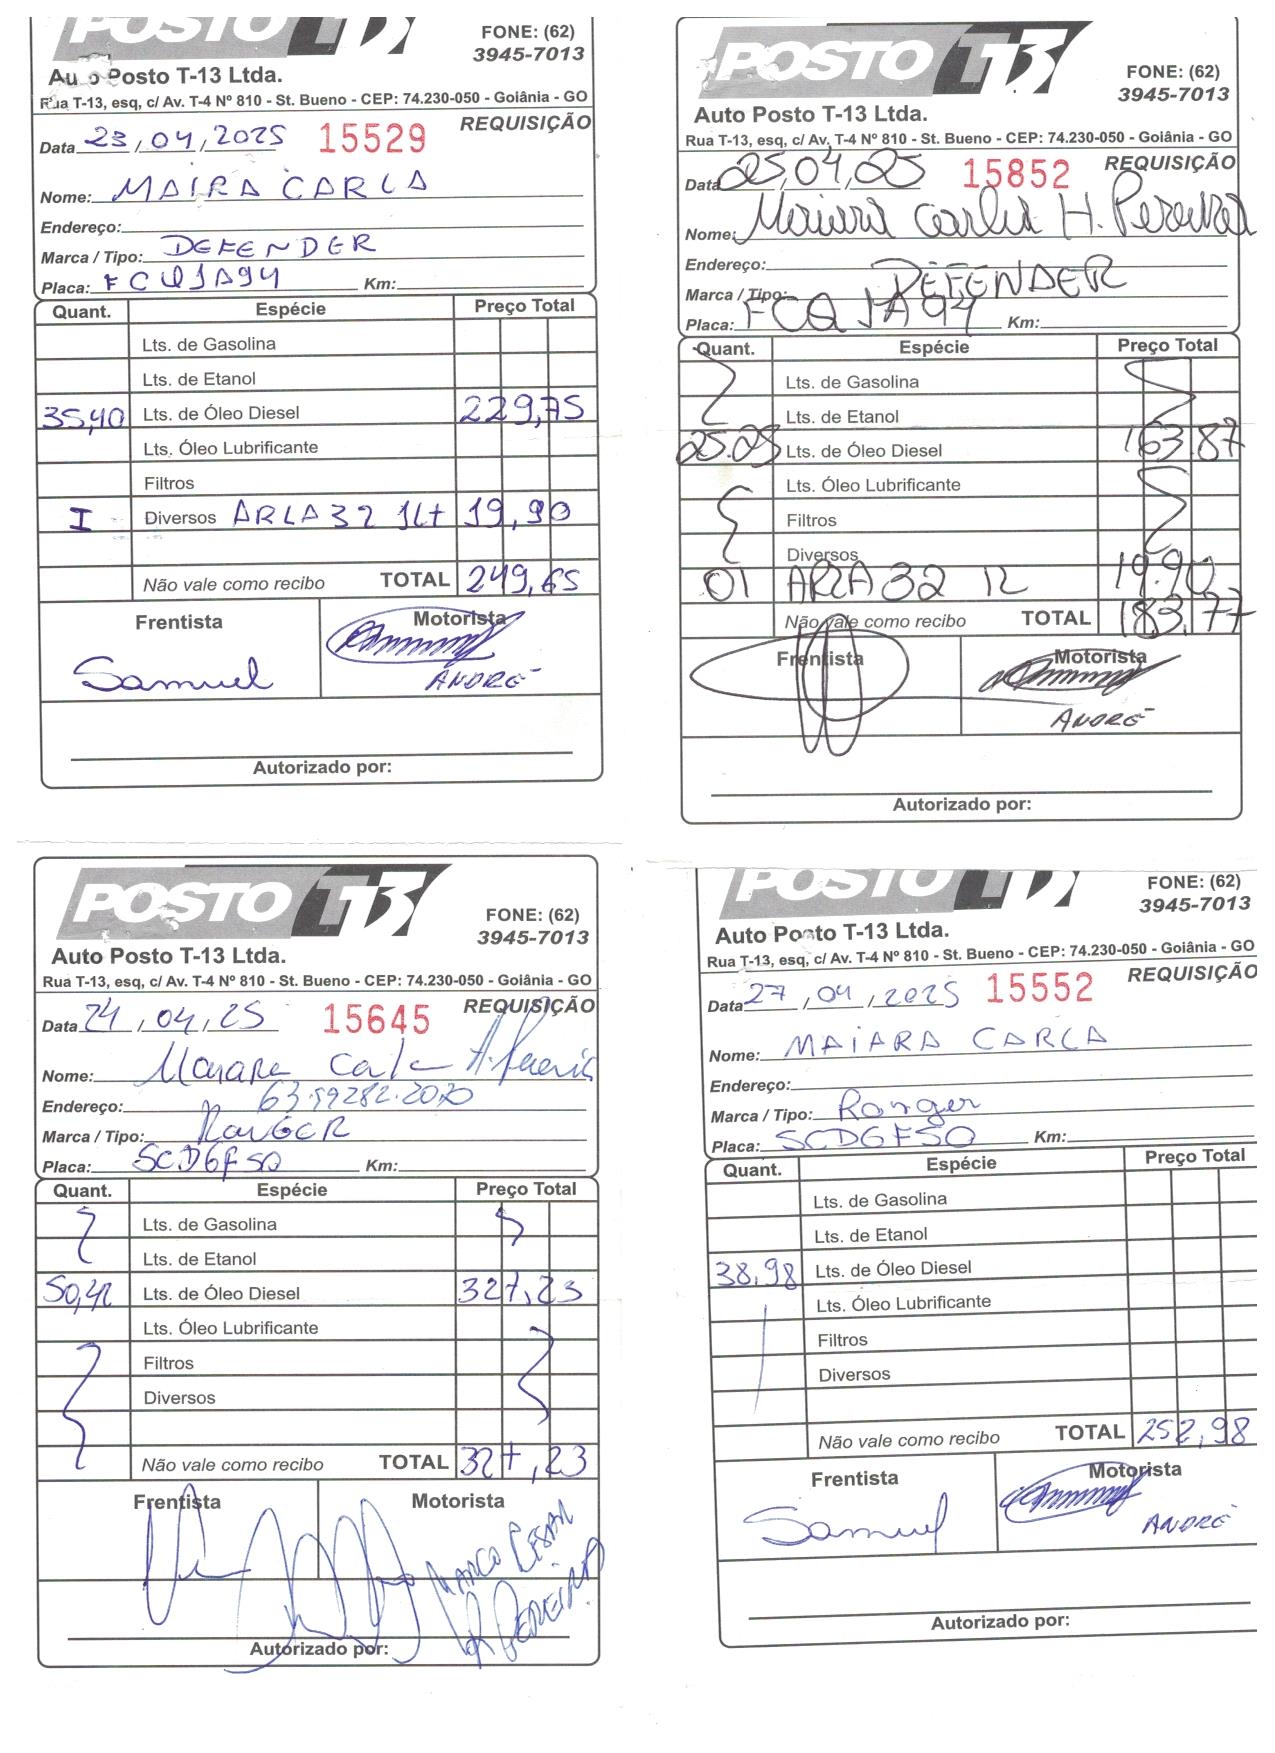 POSTO T-13
FONE: (62)
3945-7013
Auto Posto T-13 Ltda.
Rua T-13, esq, c/ Av. T-4 Nº 810 - St. Bueno - CEP: 74.230-050 - Goiânia - GO
REQUISIÇÃO
Data 23/04/2025 15529
Nome: MAIRA CARLA
Endereço:
Marca / Tipo: DEFENDER
Placa: FCQJA94 Km:
Quant. Espécie Preço Total
Lts. de Gasolina
Lts. de Etanol
35,40 Lts. de Óleo Diesel 229,75
Lts. Óleo Lubrificante
Filtros
I Diversos ARLA32 1Lt 19,90
Não vale como recibo TOTAL 249,65
Frentista Motorista
Samuel ANDRÉ
Autorizado por:
POSTO T-13
FONE: (62)
3945-7013
Auto Posto T-13 Ltda.
Rua T-13, esq, c/ Av. T-4 Nº 810 - St. Bueno - CEP: 74.230-050 - Goiânia - GO
REQUISIÇÃO
Data 25/04/25 15852
Nome: Maiara Carla H. Pereira
Endereço:
Marca / Tipo: DEFENDER
Placa: FCQ JA94 Km:
Quant. Espécie Preço Total
Lts. de Gasolina
Lts. de Etanol
25.25 Lts. de Óleo Diesel 163.87
Lts. Óleo Lubrificante
Filtros
Diversos
01 ARLA 32 1L 19.90
Não vale como recibo TOTAL 183,77
Frentista Motorista
ANDRÉ
Autorizado por:
POSTO T-13
FONE: (62)
3945-7013
Auto Posto T-13 Ltda.
Rua T-13, esq, c/ Av. T-4 Nº 810 - St. Bueno - CEP: 74.230-050 - Goiânia - GO
REQUISIÇÃO
Data 24/04/25 15645
Nome: Maiara Carla H. Pereira
Endereço: 63.99282.2070
Marca / Tipo: RANGER
Placa: SCD6F50 Km:
Quant. Espécie Preço Total
Lts. de Gasolina
Lts. de Etanol
50,42 Lts. de Óleo Diesel 327,23
Lts. Óleo Lubrificante
Filtros
Diversos
Não vale como recibo TOTAL 327,23
Frentista Motorista
MARCO CÉSAR
PEREIRA
Autorizado por:
POSTO T-13
FONE: (62)
3945-7013
Auto Posto T-13 Ltda.
Rua T-13, esq, c/ Av. T-4 Nº 810 - St. Bueno - CEP: 74.230-050 - Goiânia - GO
REQUISIÇÃO
Data 27/04/2025 15552
Nome: MAIARA CARLA
Endereço:
Marca / Tipo: Ranger
Placa: SCD6F50 Km:
Quant. Espécie Preço Total
Lts. de Gasolina
Lts. de Etanol
38,98 Lts. de Óleo Diesel
Lts. Óleo Lubrificante
Filtros
Diversos
Não vale como recibo TOTAL 252,98
Frentista Motorista
Samuel ANDRÉ
Autorizado por: